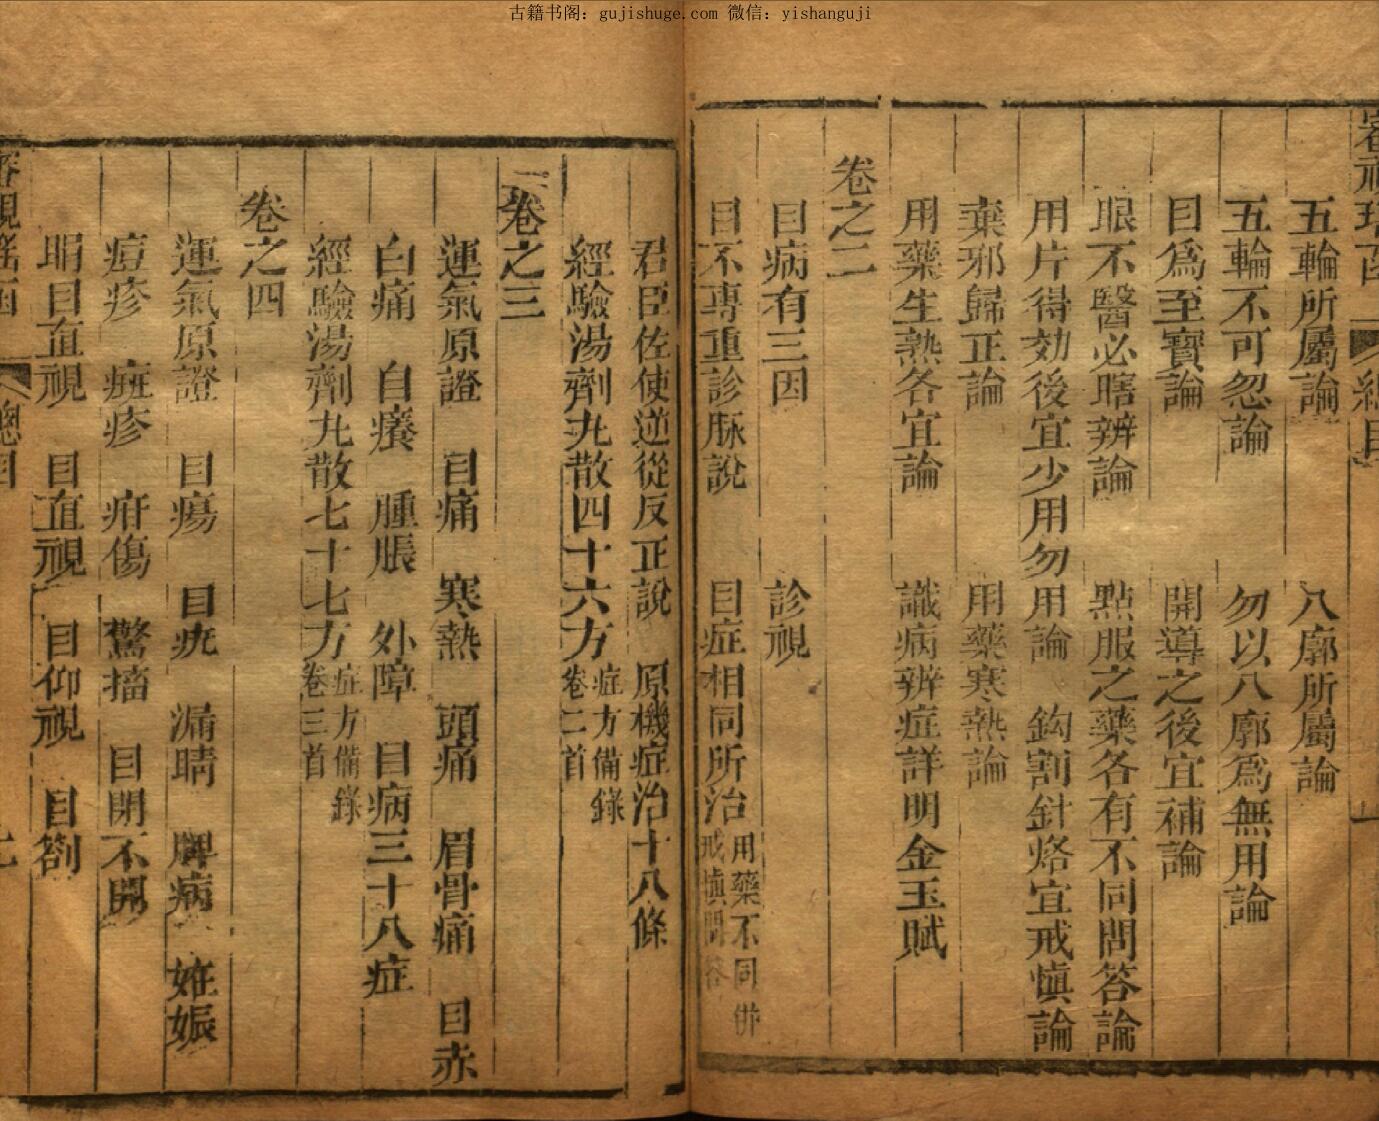 古籍书阁：gujishuge.com 微信：yishanguji
五輪所屬論 八廓所屬論
五輪不可忽論 勿以八廓爲無用論
目爲至寶論 開導之後宜補論
眼不醫必瞎辨論 點服之藥各有不同問答論
用片得効後宜少用勿用論 鈎割針烙宜戒慎論
棄邪歸正論 用藥寒熱論
用藥生熟各宜論 識病辨症詳明金玉賦
卷之二
目病有三因 診視
目不專重診脉說 目症相同所治用藥不同併戒慎問答
君臣佐使逆從反正說 原機症治十八條
經驗湯劑丸散四十六方症方備錄卷二首
卷之三
運氣原證 目痛 寒熱 頭痛 眉骨痛 目赤
白痛 目癢 腫脹 外障 目病三十八症
經驗湯劑丸散七十七方症方備錄卷三首
卷之四
運氣原證 目瘍 目疣 漏睛 脾病 妊娠
痘疹 癍疹 疳傷 驚搐 目閉不開
明目直視 目直視 目仰視 目劄
審視瑤函 總目